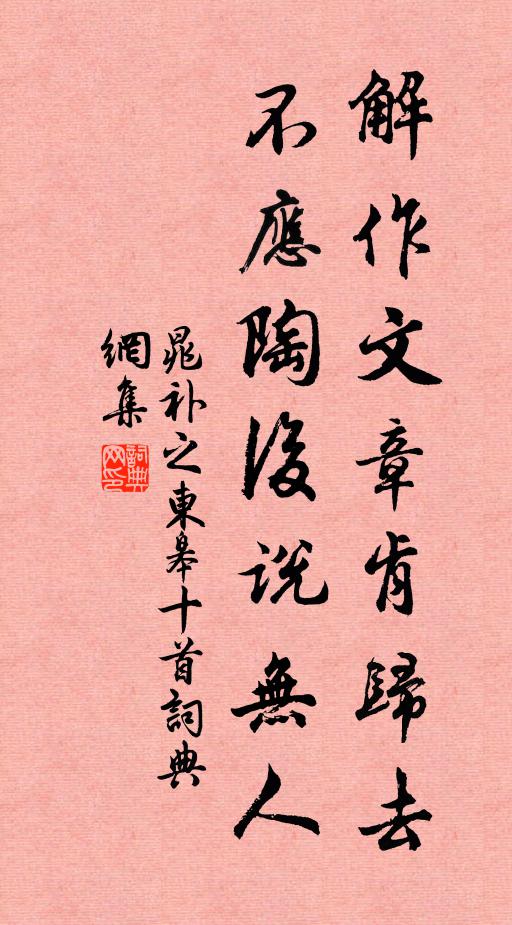 解作文章肯歸去
不應陶後說無人
晁补之東皋十首詞典
網集
詞典
网印